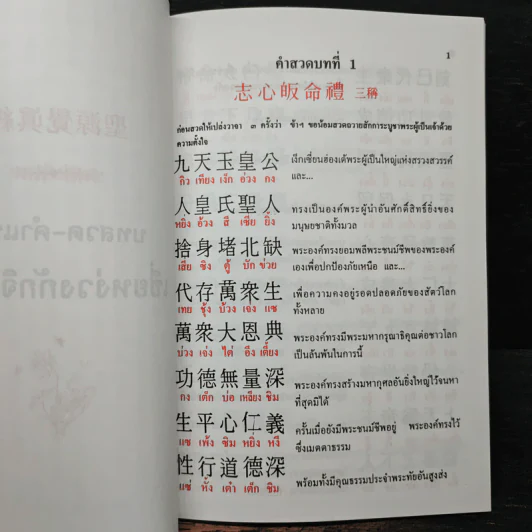 คำสวดบทที่ 1
1
志心皈命禮 三稱
ก่อนสวดให้เปล่งวาจา ๓ ครั้งว่า ข้าฯ ขอน้อมสวดถวายสักการะบูชาพระผู้เป็นเจ้าด้วย
ความตั้งใจ
九天玉皇公
กิว เทียง เง็ก อ้วง กง
เง็กเซียนฮ่องเต้พระผู้เป็นใหญ่แห่งสรวงสวรรค์
และ...
人皇氏聖人
หยิ่ง อ้วง สี เซีย ยิ้ง
ทรงเป็นองค์พระผู้นำอันศักดิ์สิทธิ์ยิ่งของ
มนุษยชาติทั้งมวล
捨身堵北缺
เสีย ซิง ตู้ บัก ข่วย
พระองค์ทรงยอมพลีพระชนม์ชีพของพระองค์
เองเพื่อปกป้องภัยเหนือ และ...
代存萬衆生
เทย ชุ้ง บ้วง เจ่ง แซ
เพื่อความคงอยู่รอดปลอดภัยของสัตว์โลก
ทั้งหลาย
萬衆大恩典
บ่วง เจ่ง ไต่ อึง เตี้ยง
พระองค์ทรงมีพระมหากรุณาธิคุณต่อชาวโลก
เป็นล้นพ้นในการนี้
功德無量深
กง เต็ก บ่อ เหลียง ชิม
พระองค์ทรงสร้างมหากุศลอันยิ่งใหญ่ไว้จนหา
ที่สุดมิได้
生平心仁義
แซ เพ้ง ซิม หยิ่ง หงี
ครั้นเมื่อยังมีพระชนม์ชีพอยู่ พระองค์ทรงไว้
ซึ่งเมตตาธรรม
性行道德深
แซ่ หั้ง เต๋า เต็ก ชิม
พร้อมทั้งมีคุณธรรมประจำพระทัยอันสูงส่ง